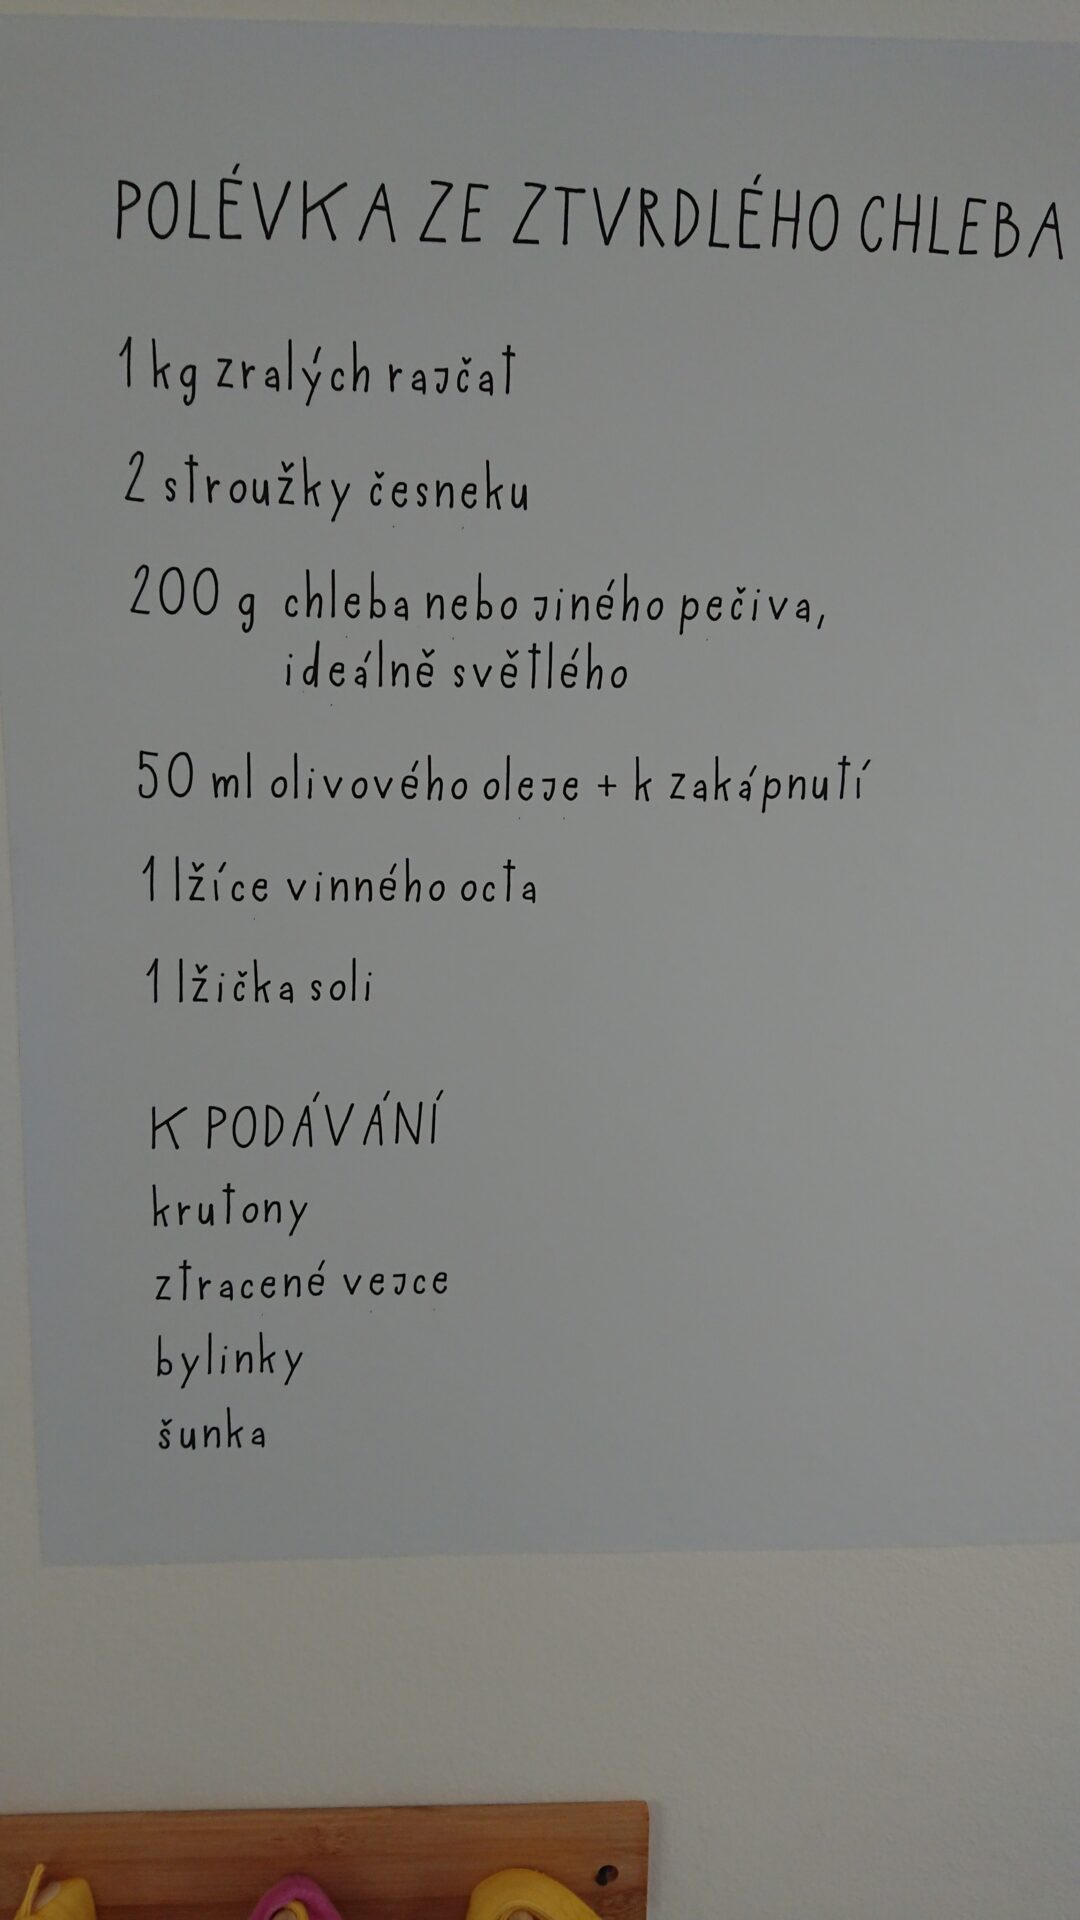 POLÉVKA ZE ZTVRDLÉHO CHLEBA
1 kg zralých rajčat
2 stroužky česneku
200 g chleba nebo jiného pečiva,
ideálně světlého
50 ml olivového oleje + k zakápnutí
1 lžíce vinného octa
1 lžička soli
K PODÁVÁNÍ
krutony
ztracené vejce
bylinky
šunka